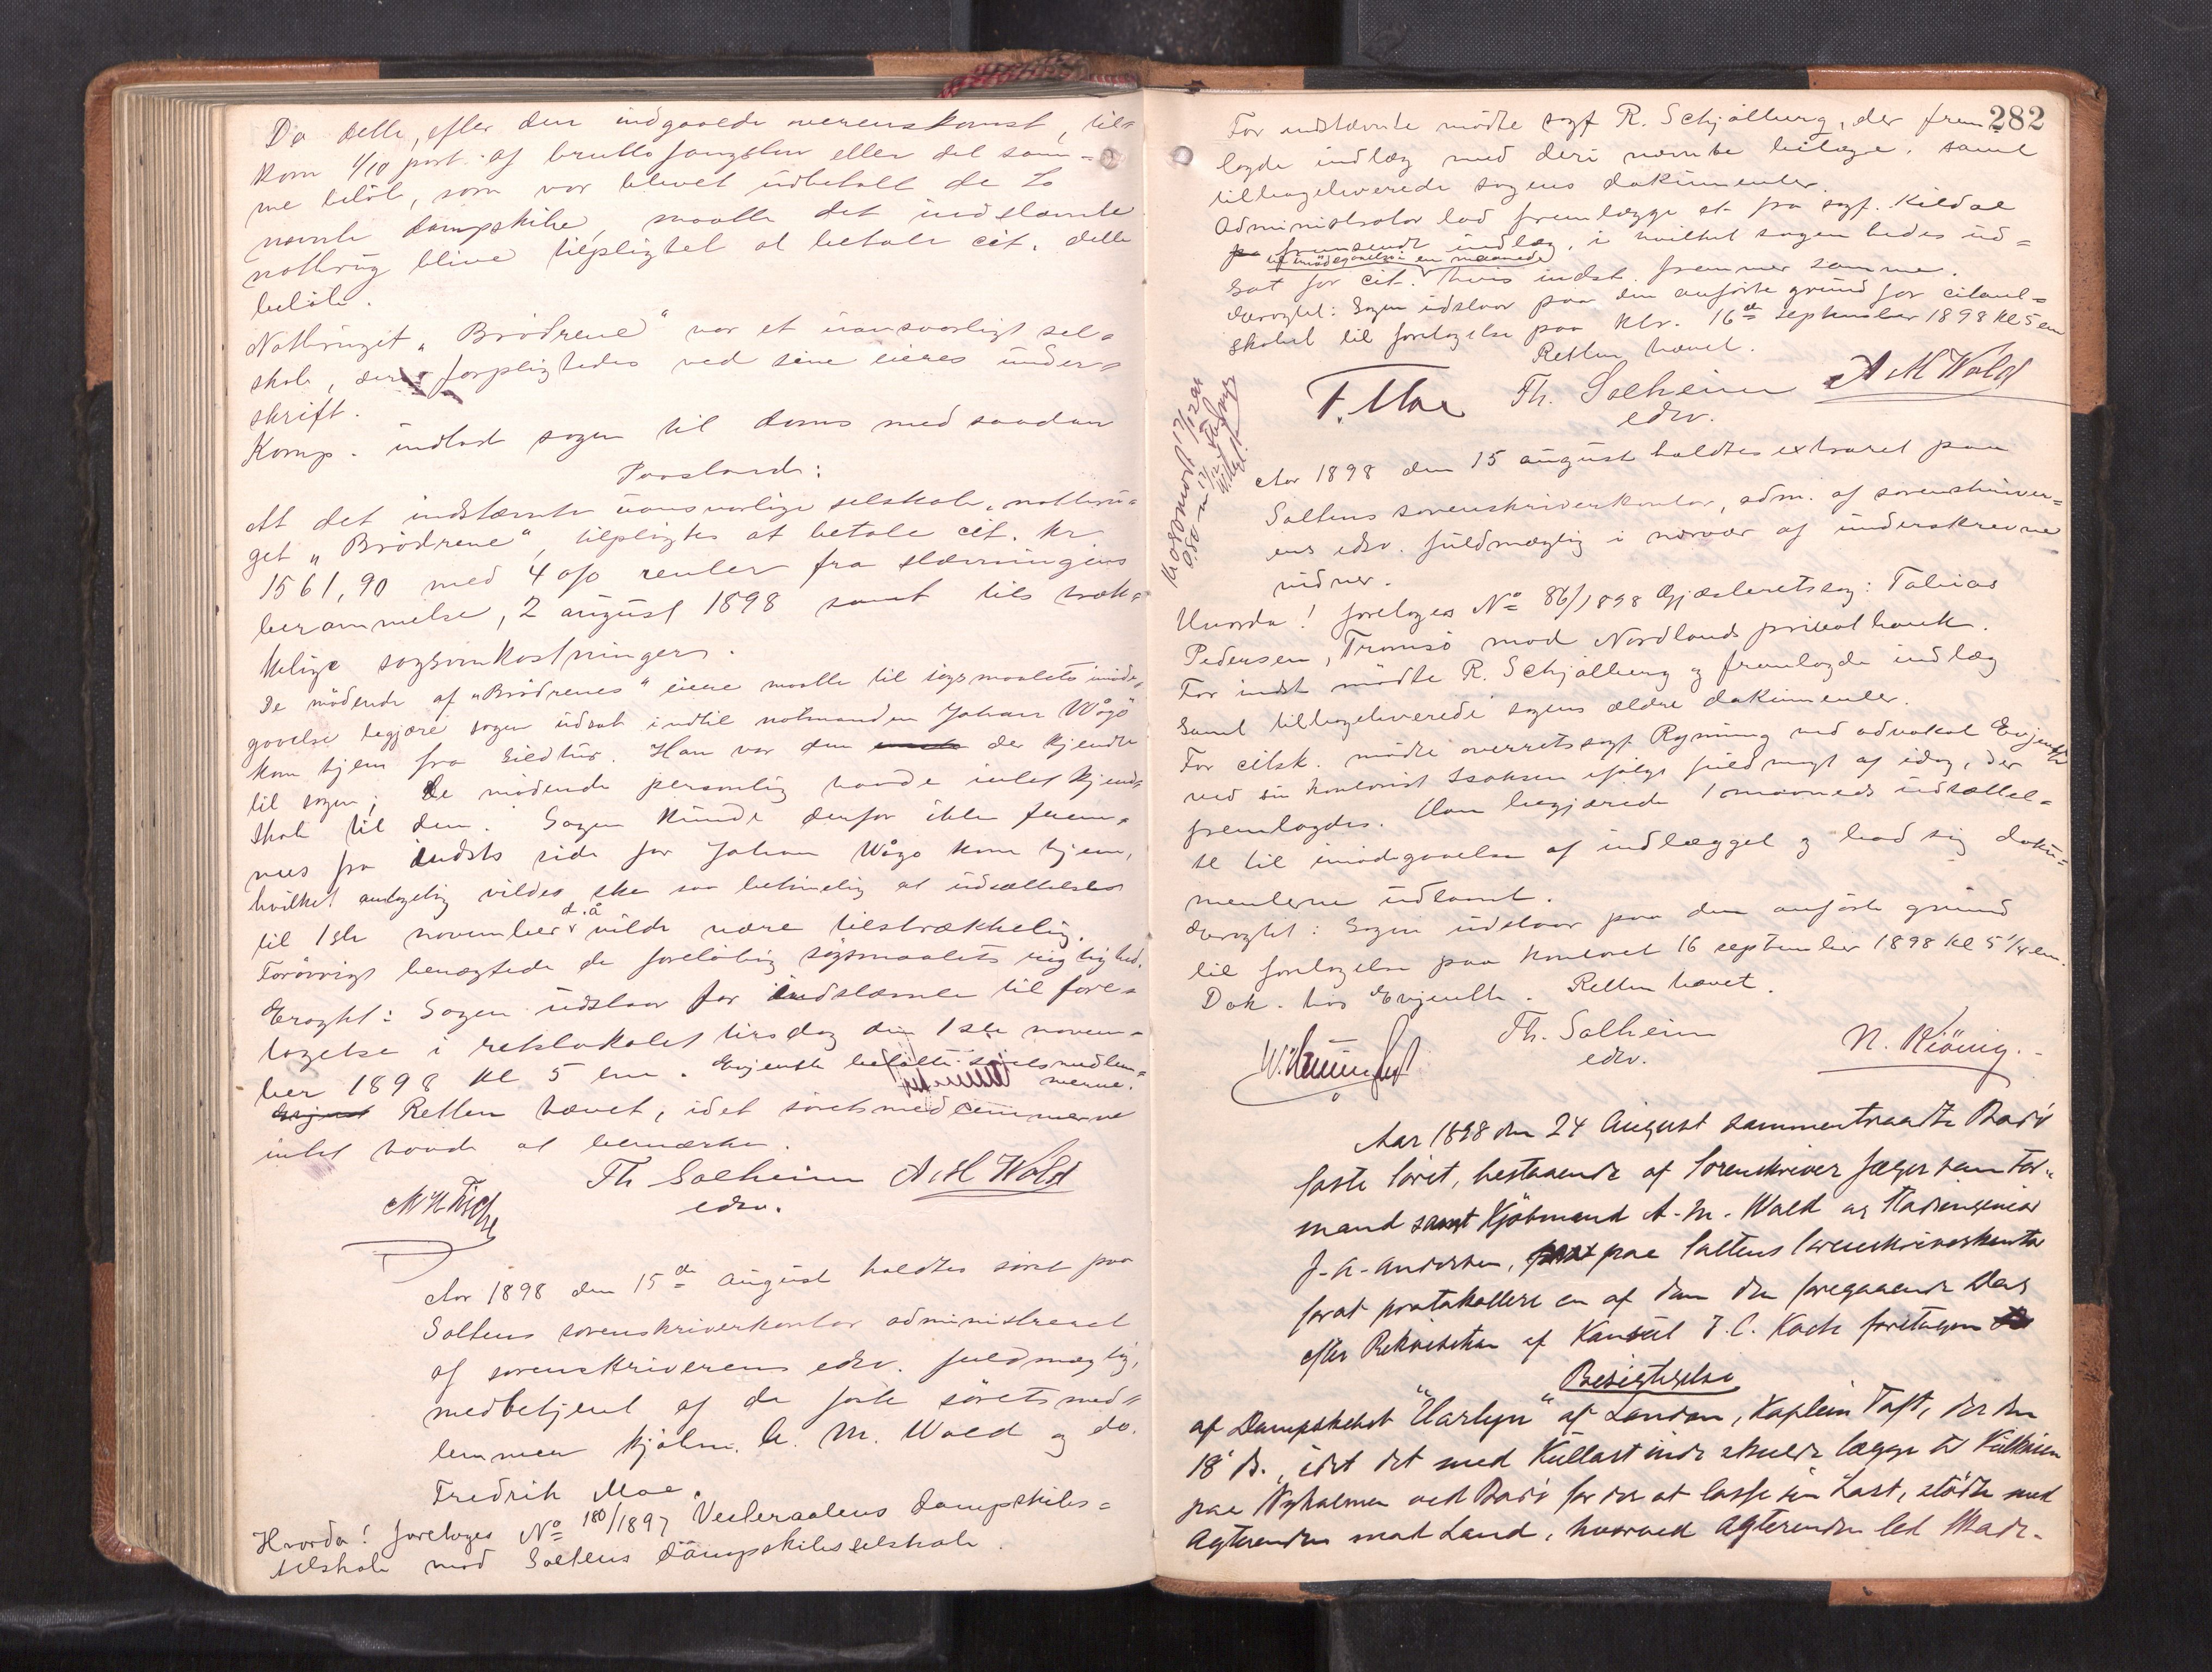 Da dette, efter den indgaaede overenskomst, til=
kom 1/10 part af brutto fangsten eller det sam=
me beløb, som var blevet udbetalt de to
nævnte dampskibe, maatte det indstævnte
notbrug blive tilpligtet at betale cit. dette
beløb.
Notbruget "Brødrene" var et uansvarligt sel=
skab, der forpligtedes ved sine eieres under=
skrift.
Komp. indlod sagen til doms med saadan
Paastand:
At det indstævnte uansvarlige selskab, notbru=
get "Brødrene", tilpligtes at betale cit. kr
1561,90 med 4 o/o renter fra stævningens
berammelse, 2 august 1898 samt tils træk=
kelige sagsomkostninger.
De mødende af "Brødrenes" eiere maatte til søgsmaalets imøde=
gaaelse begjære sagen udsat indtil notmanden Johan Vågø
kom hjem fra Sildtur. Han var den der kjendte
til sagen; de mødende personlig havde intet kjend=
skab til den. Sagen kunde derfor ikke frem=
mes fra indsts side før Johan Vågø kom hjem,
hvilket antagelig vildes ske saa betimelig at udsættelse
til 1ste november d. å vilde være tilstrækkelig.
Forøvrigt benægtede de foreløbig søgsmaalets rigtighed.
Eragtet: Sagen udstaar for indstævnte til fore=
tagelse i retslokalet tirsdag den 1ste novem=
ber 1898 kl 5 em. Evjenth sørets medlem=
merne.
Retten hævet, idet søretsmedlemmerne
intet havde at bemærke.
Th Solheim A. M. Wold
edsv.
Aar 1898 den 15de august holdtes søret paa
Saltens sorenskriverkontor administreret
af sorenskriverens edsv. fuldmægtig,
medbetjent af de faste sørets med=
lemmer kjøbm. A. M. Wold og do.
Fredrik Moe.
Hvorda! foretoges No 180/1897 Vesteraalens dampskibs=
selskab mod Saltens dampskibsselskab.
282
For indstævnte mødte sagf R. Schjølberg, der frem
lagde indlæg med deri nævnte bilage, samt
tilbageleverede sagens dokumenter.
Administrator lod fremlægge et fra sagf. Kildal
fremsendt indlæg, i hvilket sagen bedes ud=
til imødegaaelse en maaned
sat for cit. hvis indst. fremmer samme.
Eragtet: Sagen udstaar paa den anførte grund for citant=
skabet til foretagelse paa ktr. 16de september 1898 kl 5 em
Retten hævet.
F. Moe Th. Solheim A M Wold
edsv.
Aar 1898 den 15 august holdtes extraret paa
Saltens sorenskriverkontor, adm. af sorenskriver=
ens edsv. fuldmægtig i nærvær af underskrevne
vidner.
Hvorda! foretoges No 86/1898 Gjæsteretssag: Tobias
Pedersen, Tromsø mod Nordlands privatbank.
For indst mødte R. Schjølberg og fremlagde indlæg
samt tilbageleverede sagens ældre dokumenter.
For citsk. mødte overretssagf Rynning ved advokat Evjenth
ved sin kontorist Isaksen ifølge fuldmagt af idag, der
fremlagdes. Han begjærede 1 maaneds udsættel=
se til imødegaaelse af indlægget og bad sig doku=
menterne udlaant.
Eragtet: Sagen udstaar paa den anførte grund
til foretagelse paa kontoret 16 september 1898 kl 5 1/4 em.
Dok. hos Evjenth. Retten hævet.
Th. Solheim N. Kiönig.
edsv.
Aar 1898 den 24 August sammentraadte Bodø
faste søret, bestaaende af Sorenskriver Jæger som For=
mand samt Kjøbmand A. M. Wold og Stadsingeniør
J. A. Andersen, paa Saltens Sorenskriverkontor
forat protokollere en af dem den foregaaende Dag
efter Rekvisition af Konsul J. C. Koch foretagen
Besigtigelse
af Dampskibet "Harlyn" af London, Kaptein Taft, der den
18 ds., idet det med Kullast inde skulde lægge til Kulkaien
paa Nyholmen ved Bodø for der at losse sin Last, stødte med
Agterenden mod Land, hvorved Agterenden led Skade.